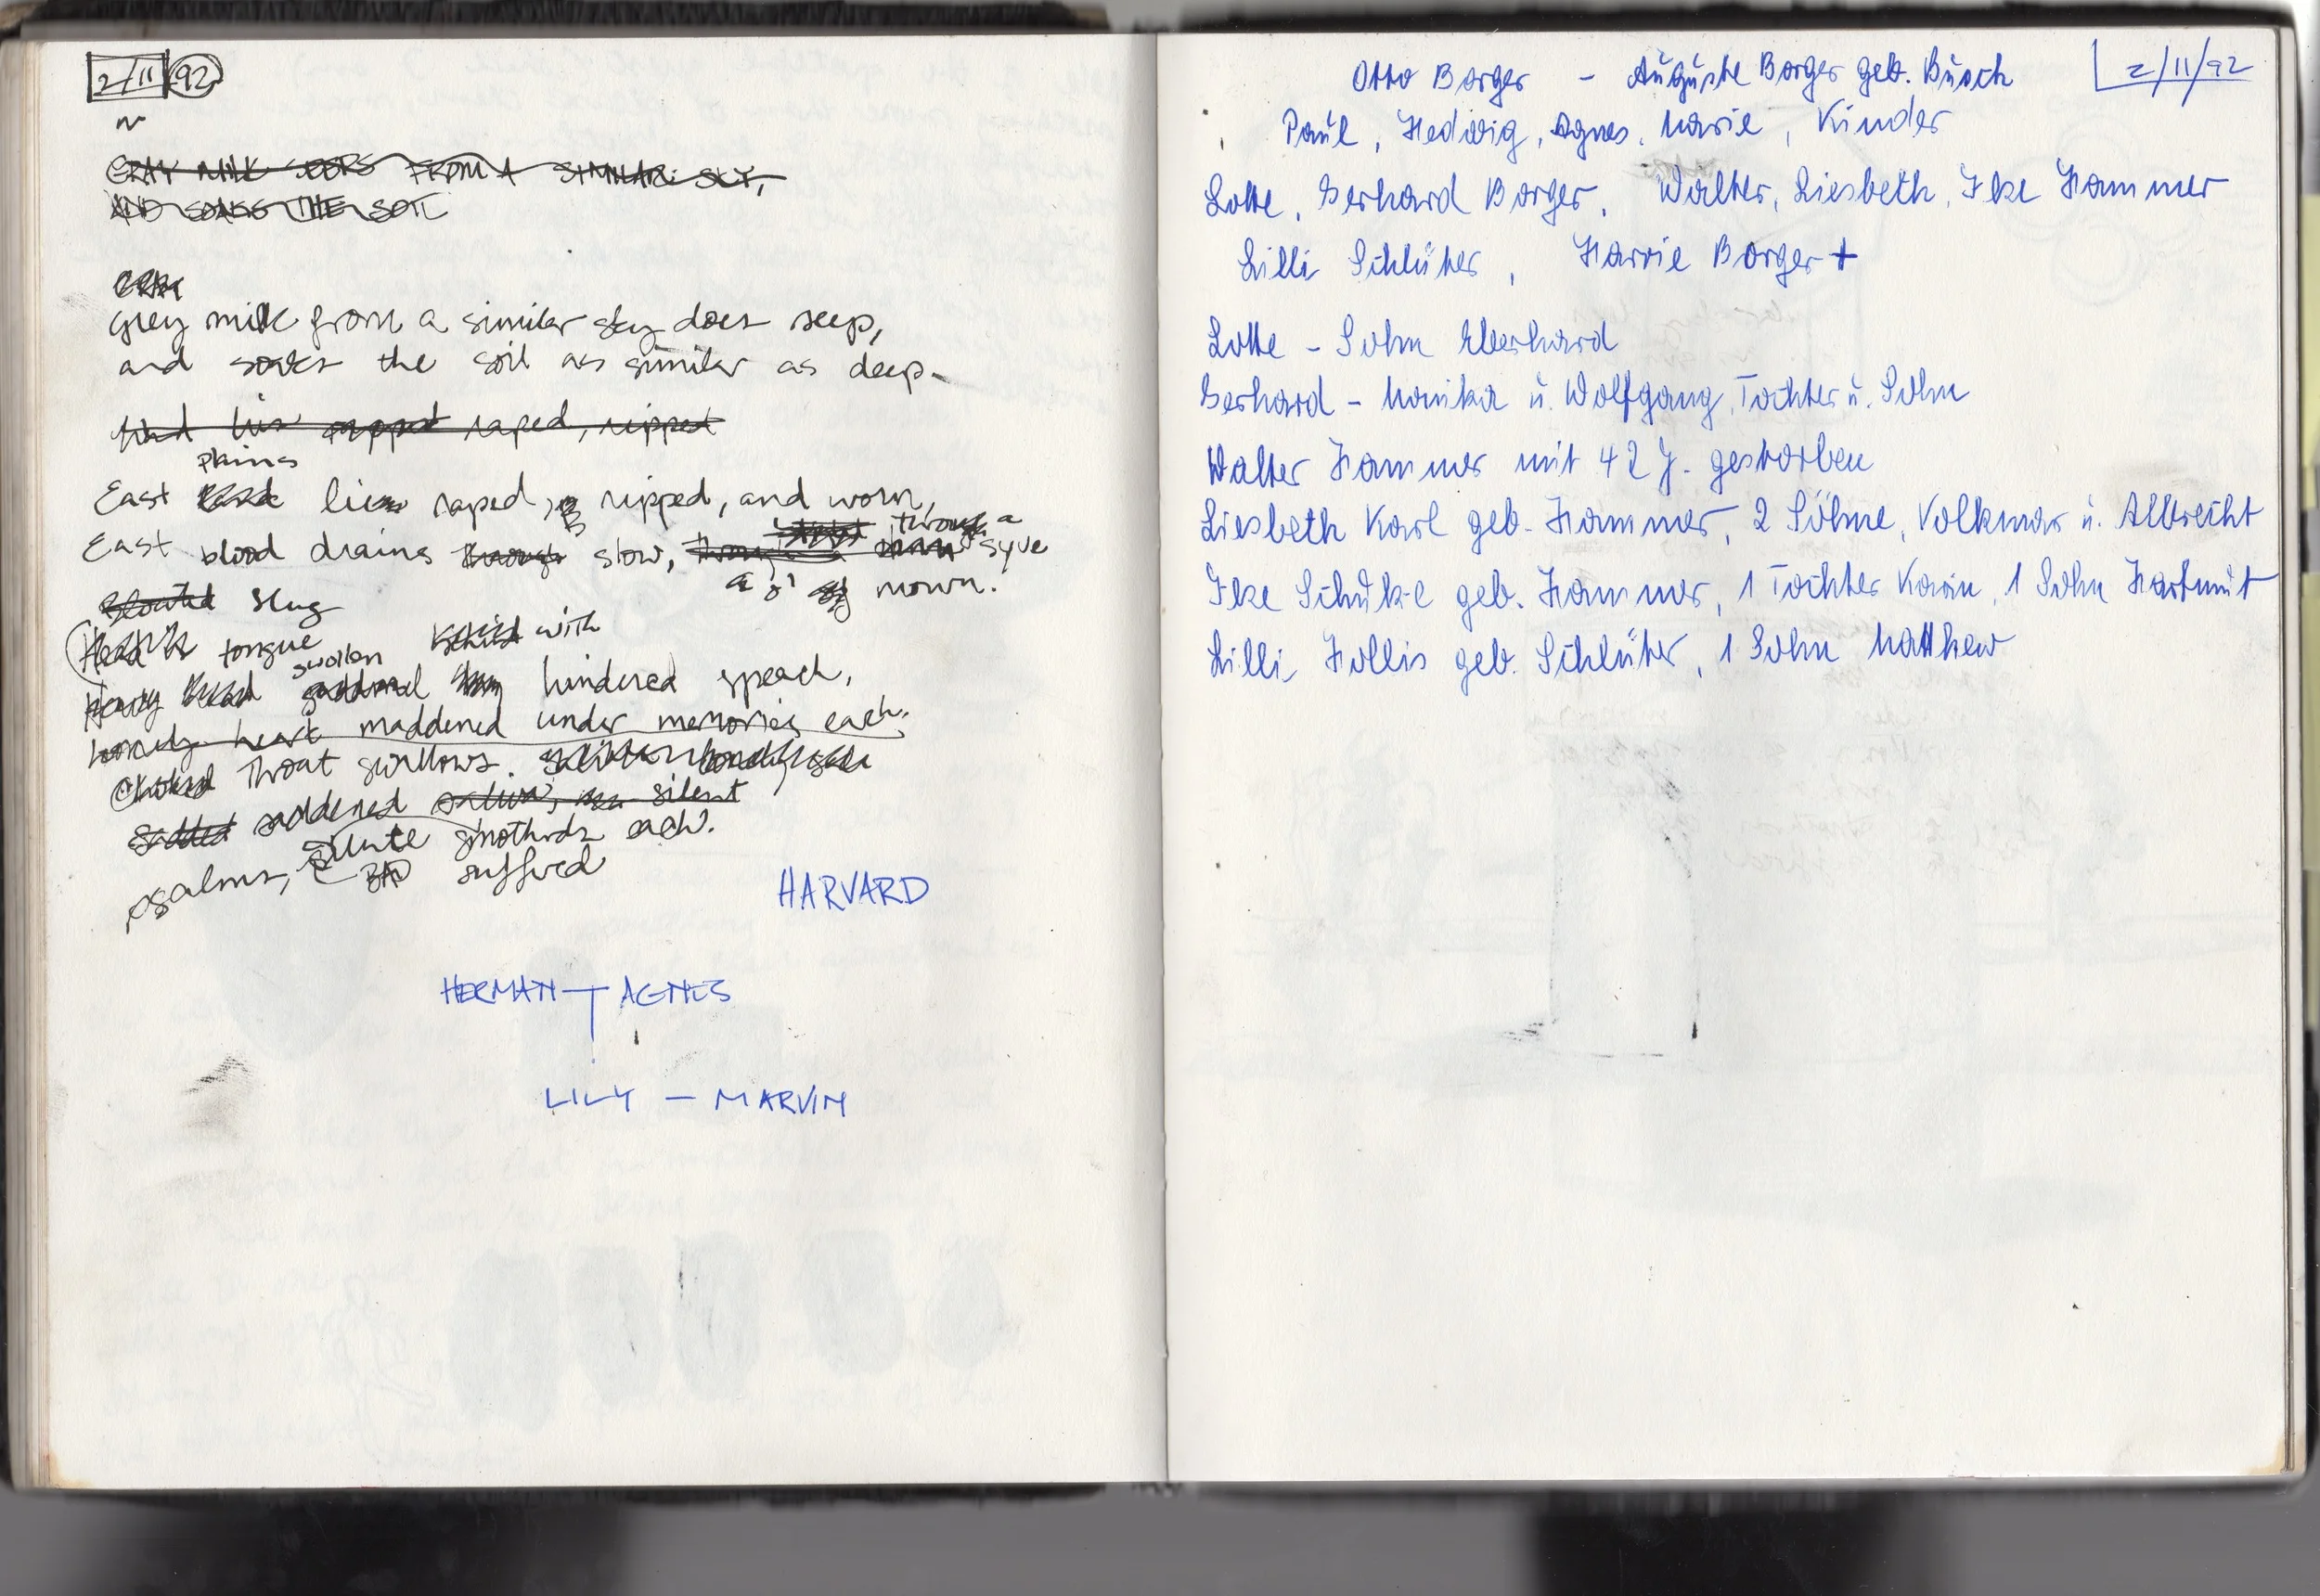 2/11 92
GRAY MILK SEEPS FROM A SIMILAR SKY,
AND SOAKS THE SOIL
GRAY
grey milk from a similar sky does seep,
and soaks the soil as similar as deep.
raped, ripped
plains
East lie raped, ripped, and worn,
through a
East blood drains through slow, syve
mown.
Bloated slug
tongue with
swollen
Heavy hindered speach,
lonely heart maddened under memories each.
Choked Throat swallows.
saddened saliva, silent
psalms, dilute smothrds each.
BAD suffired
HARVARD
HERMAN AGNES
LILY - MARVIN
2/11/92
Otto Borger - Auguste Borger geb. Busch
Paul, Hedwig, Agnes, Marie, Kinder
Lotte, Gerhard Borger, Walter, Liesbeth, Ilse Hammer
Lilli Schlüter, Harrie Borger +
Lotte - Sohn Eberhard
Gerhard - Monika u. Wolfgang, Tochter u. Sohn
Walter Hammer mit 42 J. gestorben
Liesbeth Karl geb. Hammer, 2 Söhne, Volkmar u. Albrecht
Ilse geb. Hammer, 1 Tochter Karin, 1 Sohn Hartmut
Lilli Hollis geb. Schlüter, 1 Sohn Matthew